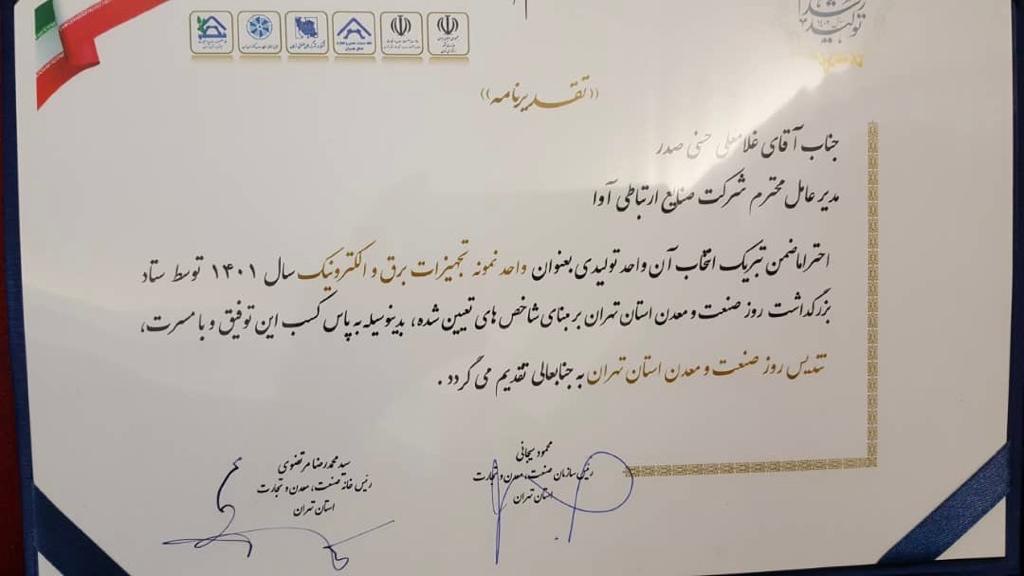 ((تقدیرنامه))
جناب آقای غلامعلی حسنی صدر
مدیر عامل محترم شرکت صنایع ارتباطی آوا
احتراما ضمن تبریک انتخاب آن واحد تولیدی بعنوان واحد نمونه تجهیزات برق و الکترونیک سال ۱۴۰۱ توسط ستاد
بزرگداشت روز صنعت و معدن استان تهران بر مبنای شاخص های تعیین شده، بدینوسیله به پاس کسب این توفیق و با مسرت،
تندیس روز صنعت و معدن استان تهران به جنابعالی تقدیم می گردد .
محمود سیجانی
رئیس سازمان صنعت، معدن و تجارت
استان تهران
سید محمدرضا مرتضوی
رئیس خانه صنعت، معدن و تجارت
استان تهران